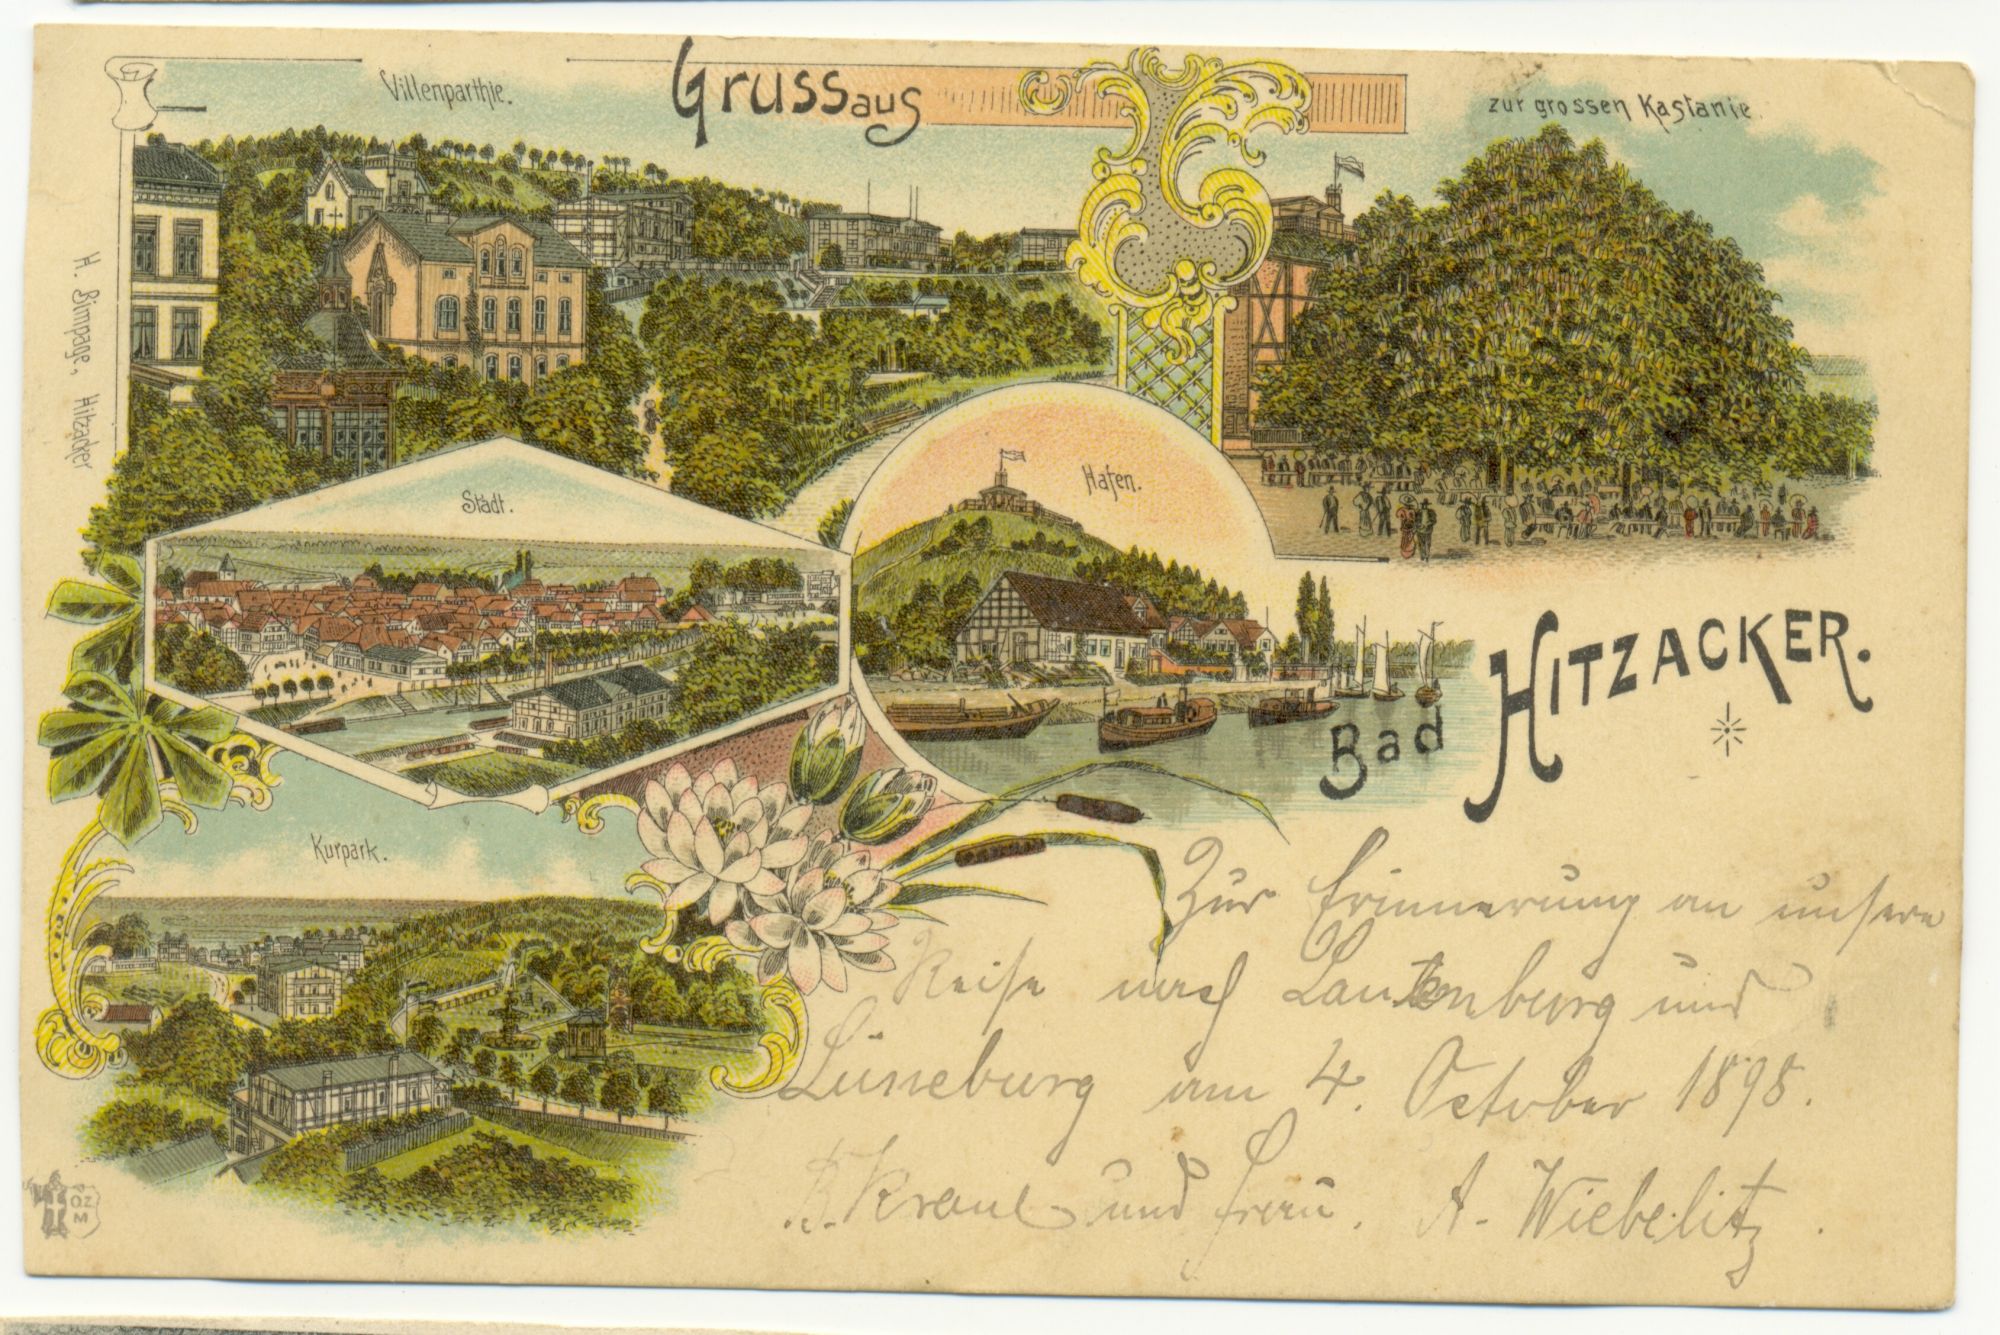 Villenparthie.
Gruss aus
zur grossen Kastanie.
H. Bimpage, Hitzacker
Stadt.
Hafen.
Bad HITZACKER.
Kurpark.
Zur Erinnerung an unsere
Reise nach Lauenburg und
Lüneburg am 4. October 1898.
und Frau. A. Wiebelitz.
O.Z.
M